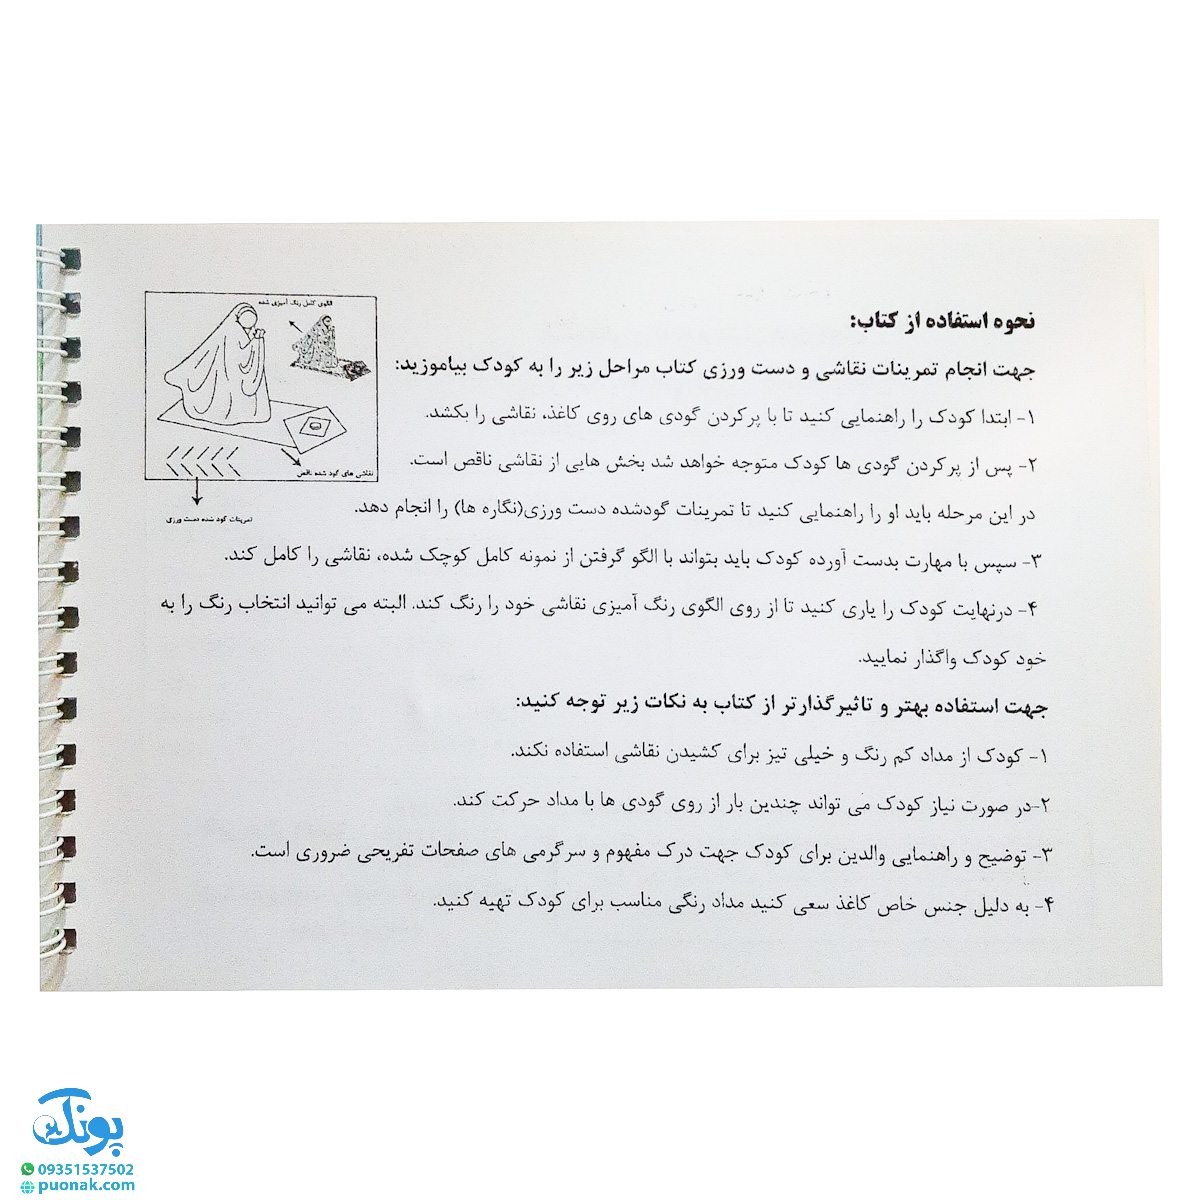 نحوه استفاده از کتاب:
جهت انجام تمرینات نقاشی و دست ورزی کتاب مراحل زیر را به کودک بیاموزید:
۱- ابتدا کودک را راهنمایی کنید تا با پرکردن گودی های روی کاغذ، نقاشی را بکشد.
۲- پس از پرکردن گودی ها کودک متوجه خواهد شد بخش هایی از نقاشی ناقص است.
در این مرحله باید او را راهنمایی کنید تا تمرینات گودشده دست ورزی(نگاره ها) را انجام دهد.
۳- سپس با مهارت بدست آورده کودک باید بتواند با الگو گرفتن از نمونه کامل کوچک شده، نقاشی را کامل کند.
۴- درنهایت کودک را یاری کنید تا از روی الگوی رنگ آمیزی نقاشی خود را رنگ کند. البته می توانید انتخاب رنگ را به
خود کودک واگذار نمایید.
جهت استفاده بهتر و تاثیرگذارتر از کتاب به نکات زیر توجه کنید:
۱- کودک از مداد کم رنگ و خیلی تیز برای کشیدن نقاشی استفاده نکند.
۲-در صورت نیاز کودک می تواند چندین بار از روی گودی ها با مداد حرکت کند.
۳- توضیح و راهنمایی والدین برای کودک جهت درک مفهوم و سرگرمی های صفحات تفریحی ضروری است.
۴- به دلیل جنس خاص کاغذ سعی کنید مداد رنگی مناسب برای کودک تهیه کنید.
الگوی کامل رنگ آمیزی شده
نقاشی های گود شده ناقص
تمرینات گود شده دست ورزی
پونک
09351537502
puonak.com